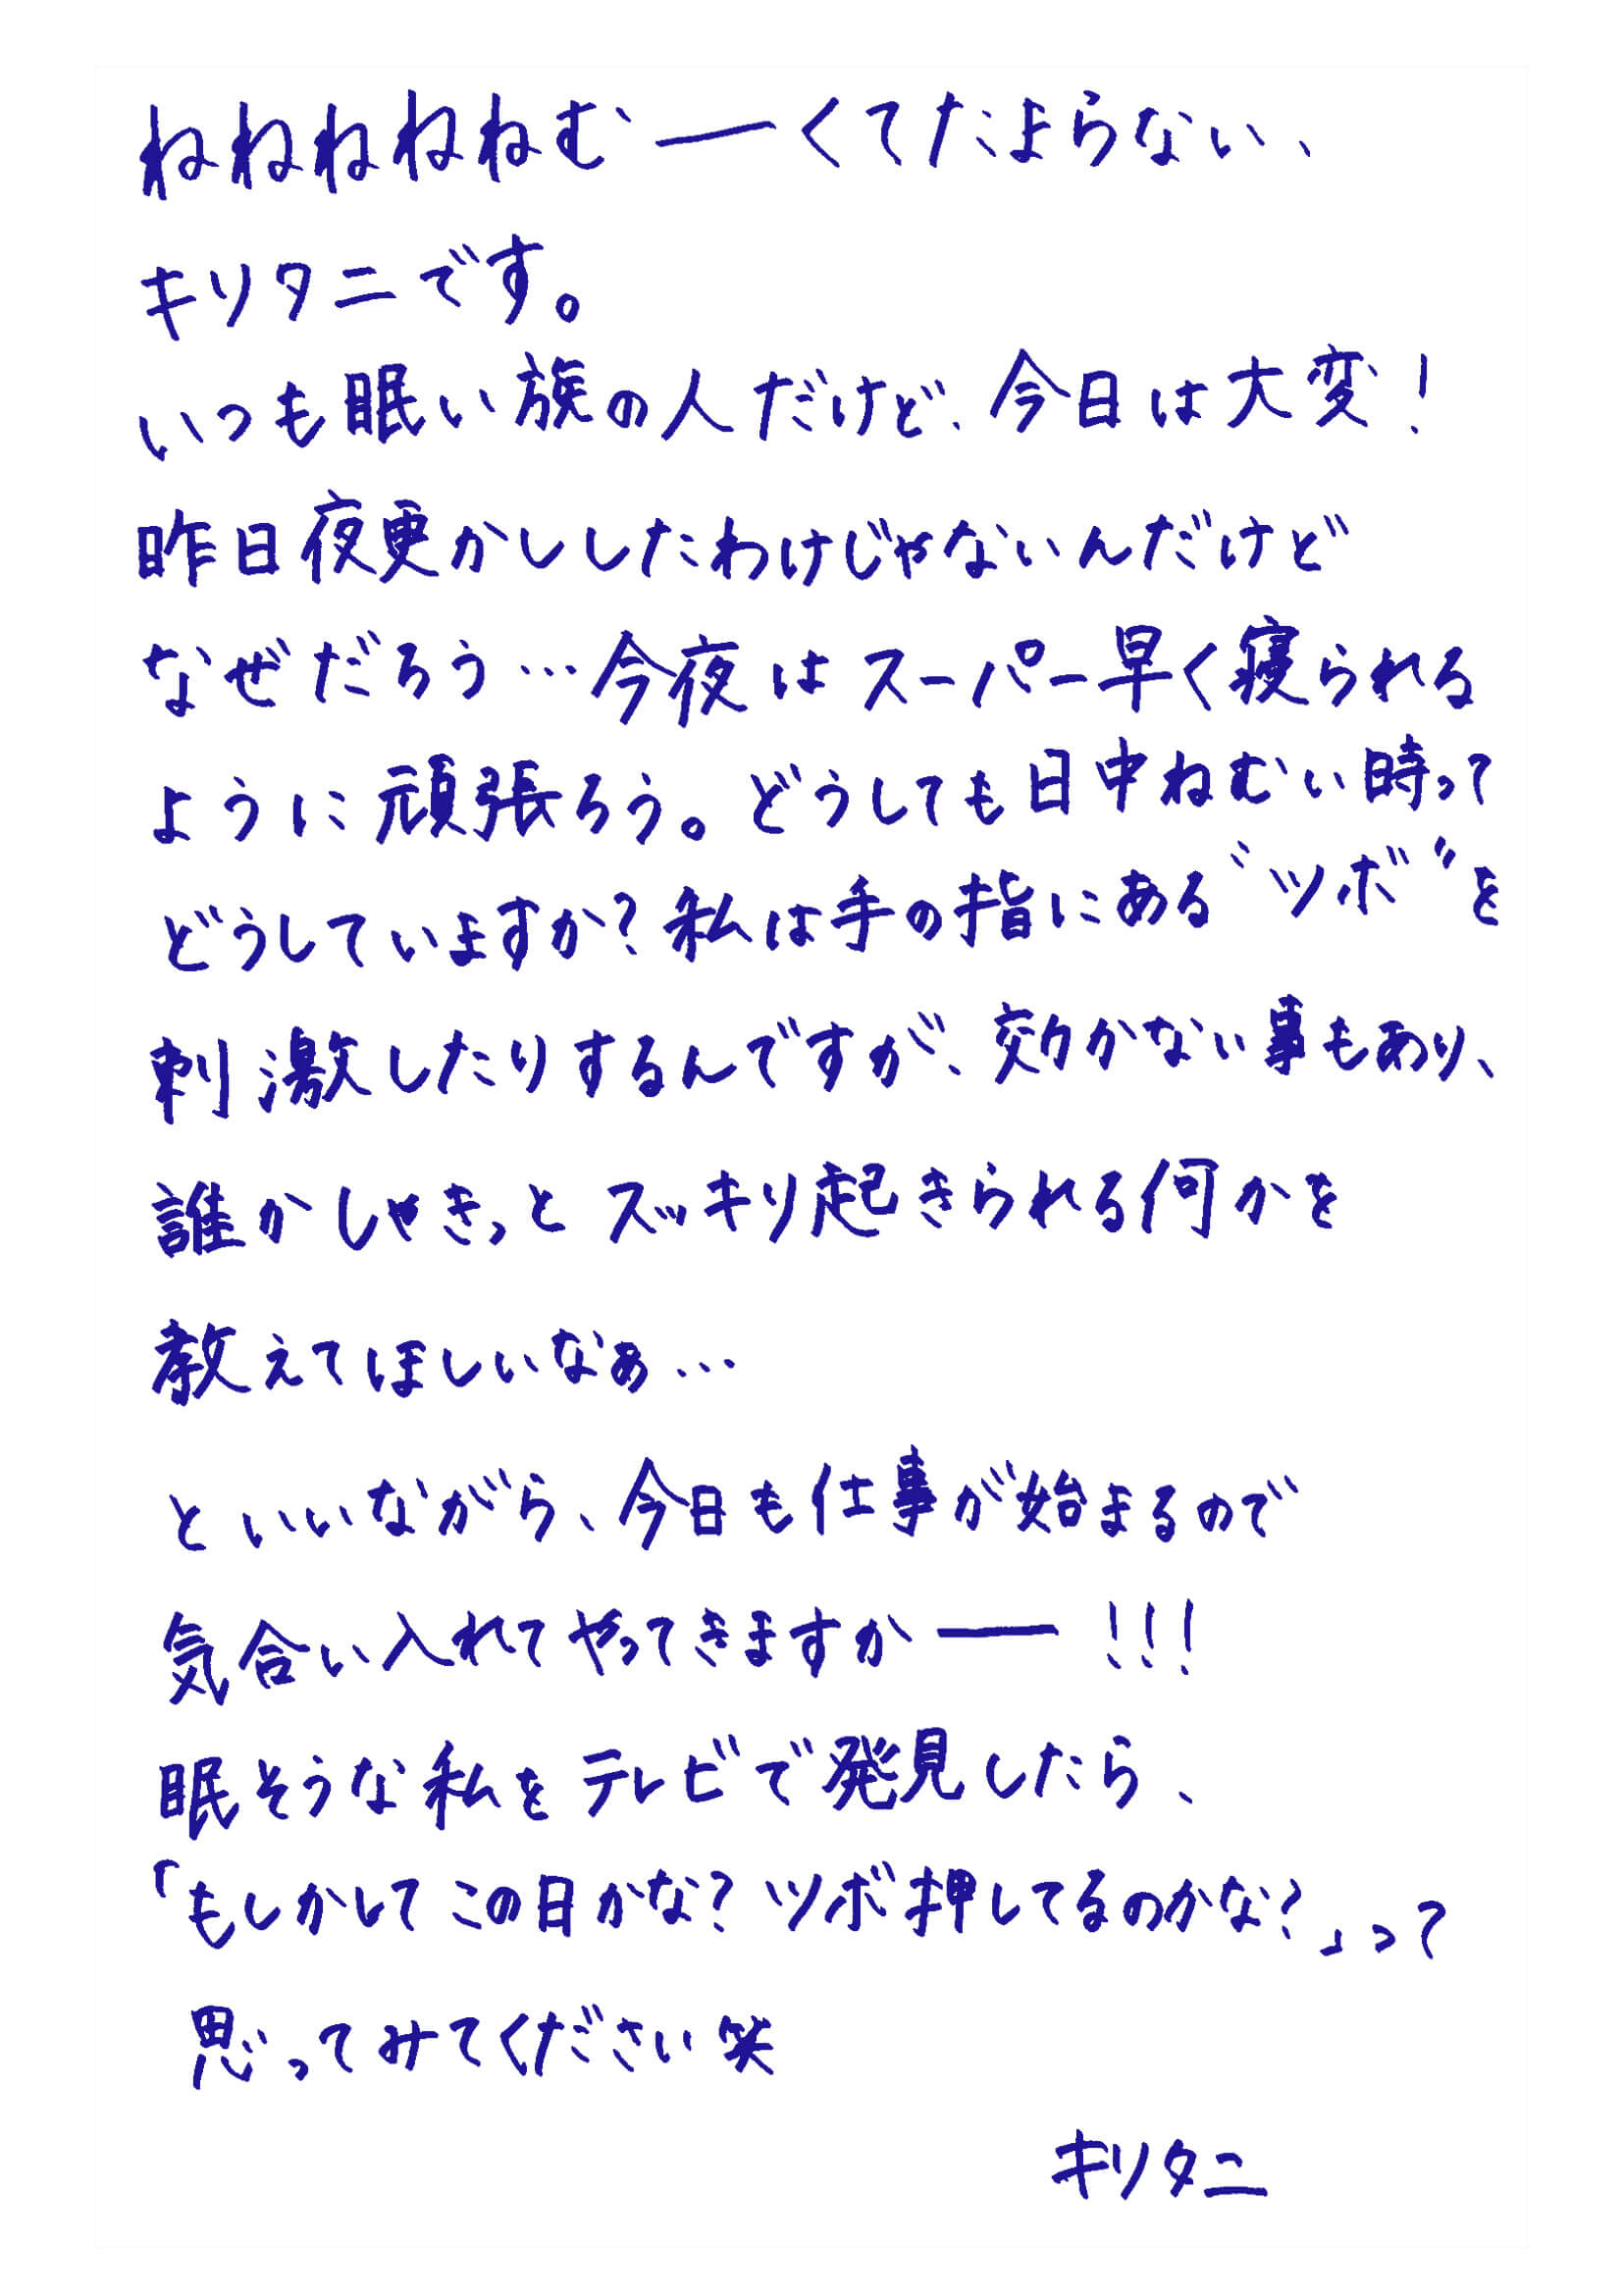 ねねねねねむーくてたまらない、
キリタニです。
いつも眠い族の人だけど、今日は大変！
昨日夜更かししたわけじゃないんだけど
なぜだろう…今夜はスーパー早く寝られる
ように頑張ろう。どうしても日中ねむい時って
どうしていますか？私は手の指にある〝ツボ〟を
刺激したりするんですが、効かない事もあり、
誰かしゃきっとスッキリ起きられる何かを
教えてほしいなぁ…
といいながら、今日も仕事が始まるので
気合い入れてやってきますかー!!!
眠そうな私をテレビで発見したら、
「もしかしてこの日かな？ツボ押してるのかな？」って
思ってみてください笑
キリタニ